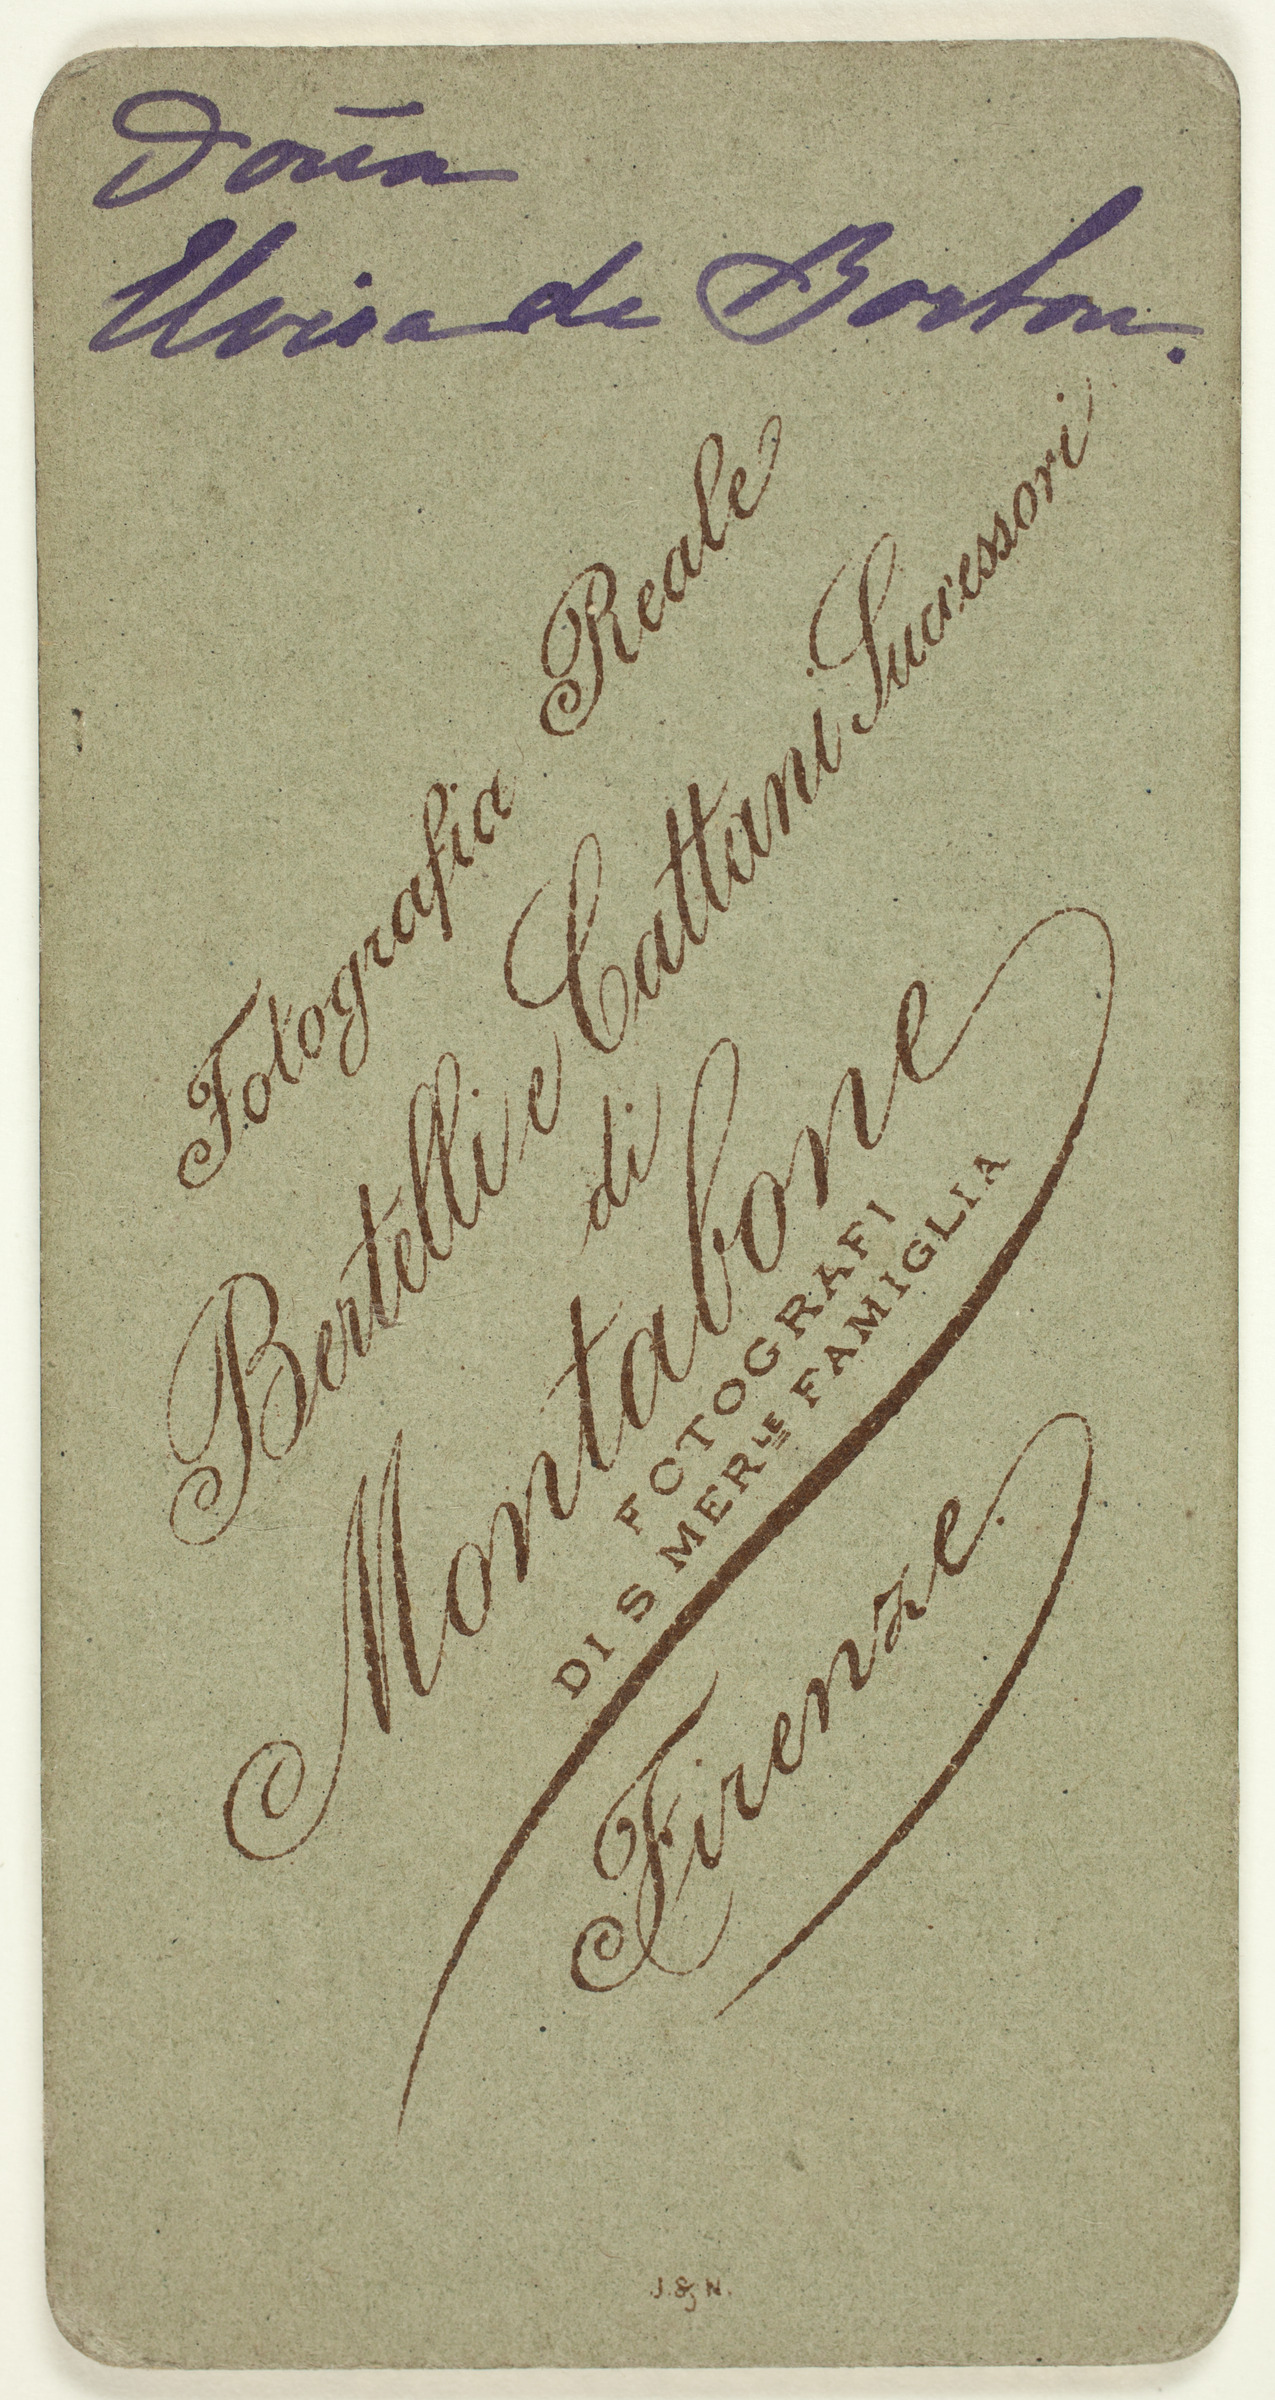 Doña
Elvira de Borbon.
Fotografia Reale
Bertelli e Cattani Successori
di
Montabone
FOTOGRAFI
DI S M E R.LE FAMIGLIA
Firenze.
J. & N.